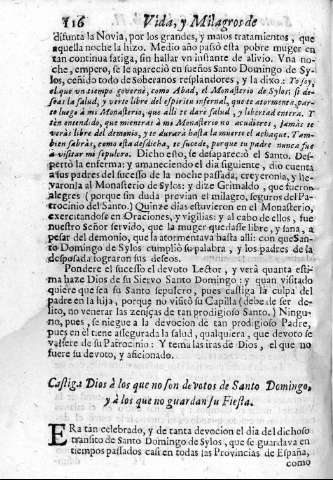 116 Vida, y Milagros de
difunta la Novia, por los grandes, y malos tratamientos, que
aquella noche la hizo. Medio año passò esta pobre muger en
tan continua fatiga, sin hallar vn instante de alivio. Vna no-
che, empero, se le apareciò en sueños Santo Domingo de Sy-
los, ceñido todo de Soberanos resplandores, y la dixo: Yo soy,
el que vn tiempo governè, como Abad, el Monasterio de Sylos: si de-
seas la salud, y verte libre del espiritu infernal, que te atormenta, par-
te luego à mi Monasterio, que alli te darè salud, y libertad entera. Y
ten entendido, que mientras à mi Monasterio no acudieres, jamàs te
veràs libre del demonio, y te durarà hasta la muerte el achaque. Tam-
bien sabràs, como esta desdicha, te sucede, porque tu padre nunca fue
à visitar mi sepulcro. Dicho esto, se desapareciò el Santo. Des-
pertò la enferma: y amaneciendo el dia siguiente, diò cuenta
à sus padres del sucesso de la noche passada, creyeronla, y lle-
varonla al Monasterio de Sylos: y dize Grimaldo, que fueron
alegres (porque sin duda previan el milagro, seguros del Pa-
trocinio del Santo.) Quinze dias estuvieron en el Monasterio,
exercitandose en Oraciones, y vigilias: y al cabo de ellos, fue
nuestro Señor servido, que la muger quedasse libre, y sana, à
pesar del demonio, que la atormentava hasta alli: con que San-
to Domingo de Sylos cumpliò su palabra, y los padres de la
desposada lograron sus deseos.
Pondere el sucesso el devoto Lector, y verà quanta esti-
ma haze Dios de su Siervo Santo Domingo: y quan visitado
quiere que sea su Santo sepulcro, pues castiga la culpa del
padre en la hija, porque no visitò su Capilla (debe de ser de-
lito, no venerar las zenizas de tan prodigioso Santo.) Ningu-
no, pues, se niegue à la devocion de tan prodigioso Padre,
pues en èl tiene assegurada la salud, qualquiera, que devoto se
valiere de su Patrocinio: Y tema las iras de Dios, el que no
fuere su devoto, y aficionado.
Castiga Dios à los que no son devotos de Santo Domingo,
y à los que no guardan su Fiesta.
ERa tan celebrado, y de tanta devocion el dia del dichoso
transito de Santo Domingo de Sylos, que se guardava en
tiempos passados casi en todas las Provincias de España,
como